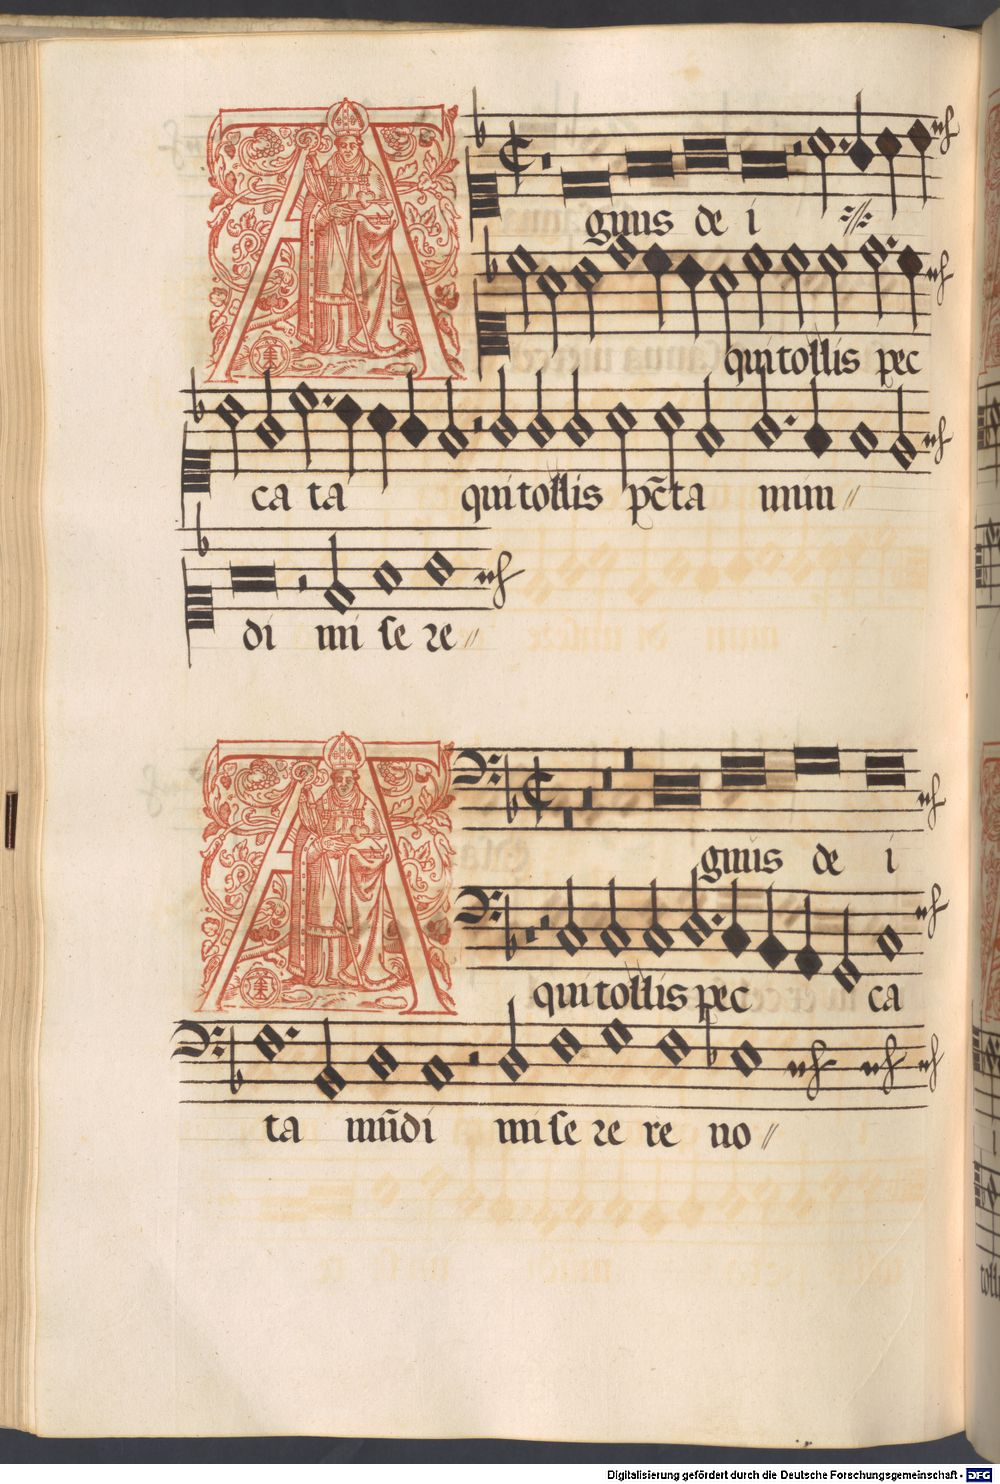 Agnus de i
qui tollis pec
ca ta qui tollis pc̄ta mun
di mi se re
Agnus de i
qui tollis pec ca
ta mūdi mi se re re no
Digitalisierung gefördert durch die Deutsche Forschungsgemeinschaft - DFG